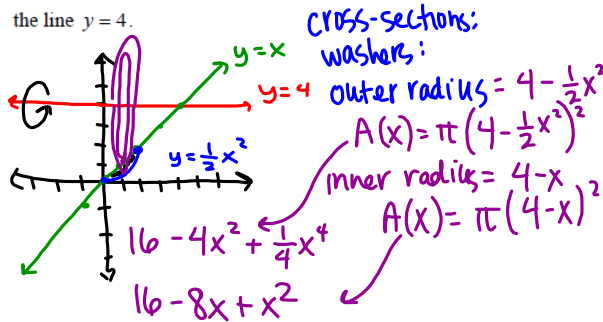 the line y = 4.
cross-sections:
washers:
y = x
y = 4
outer radius = 4 - 1/2 x²
A(x) = π(4 - 1/2 x²)²
y = 1/2 x²
inner radius = 4 - x
A(x) = π(4 - x)²
16 - 4x² + 1/4 x⁴
16 - 8x + x²